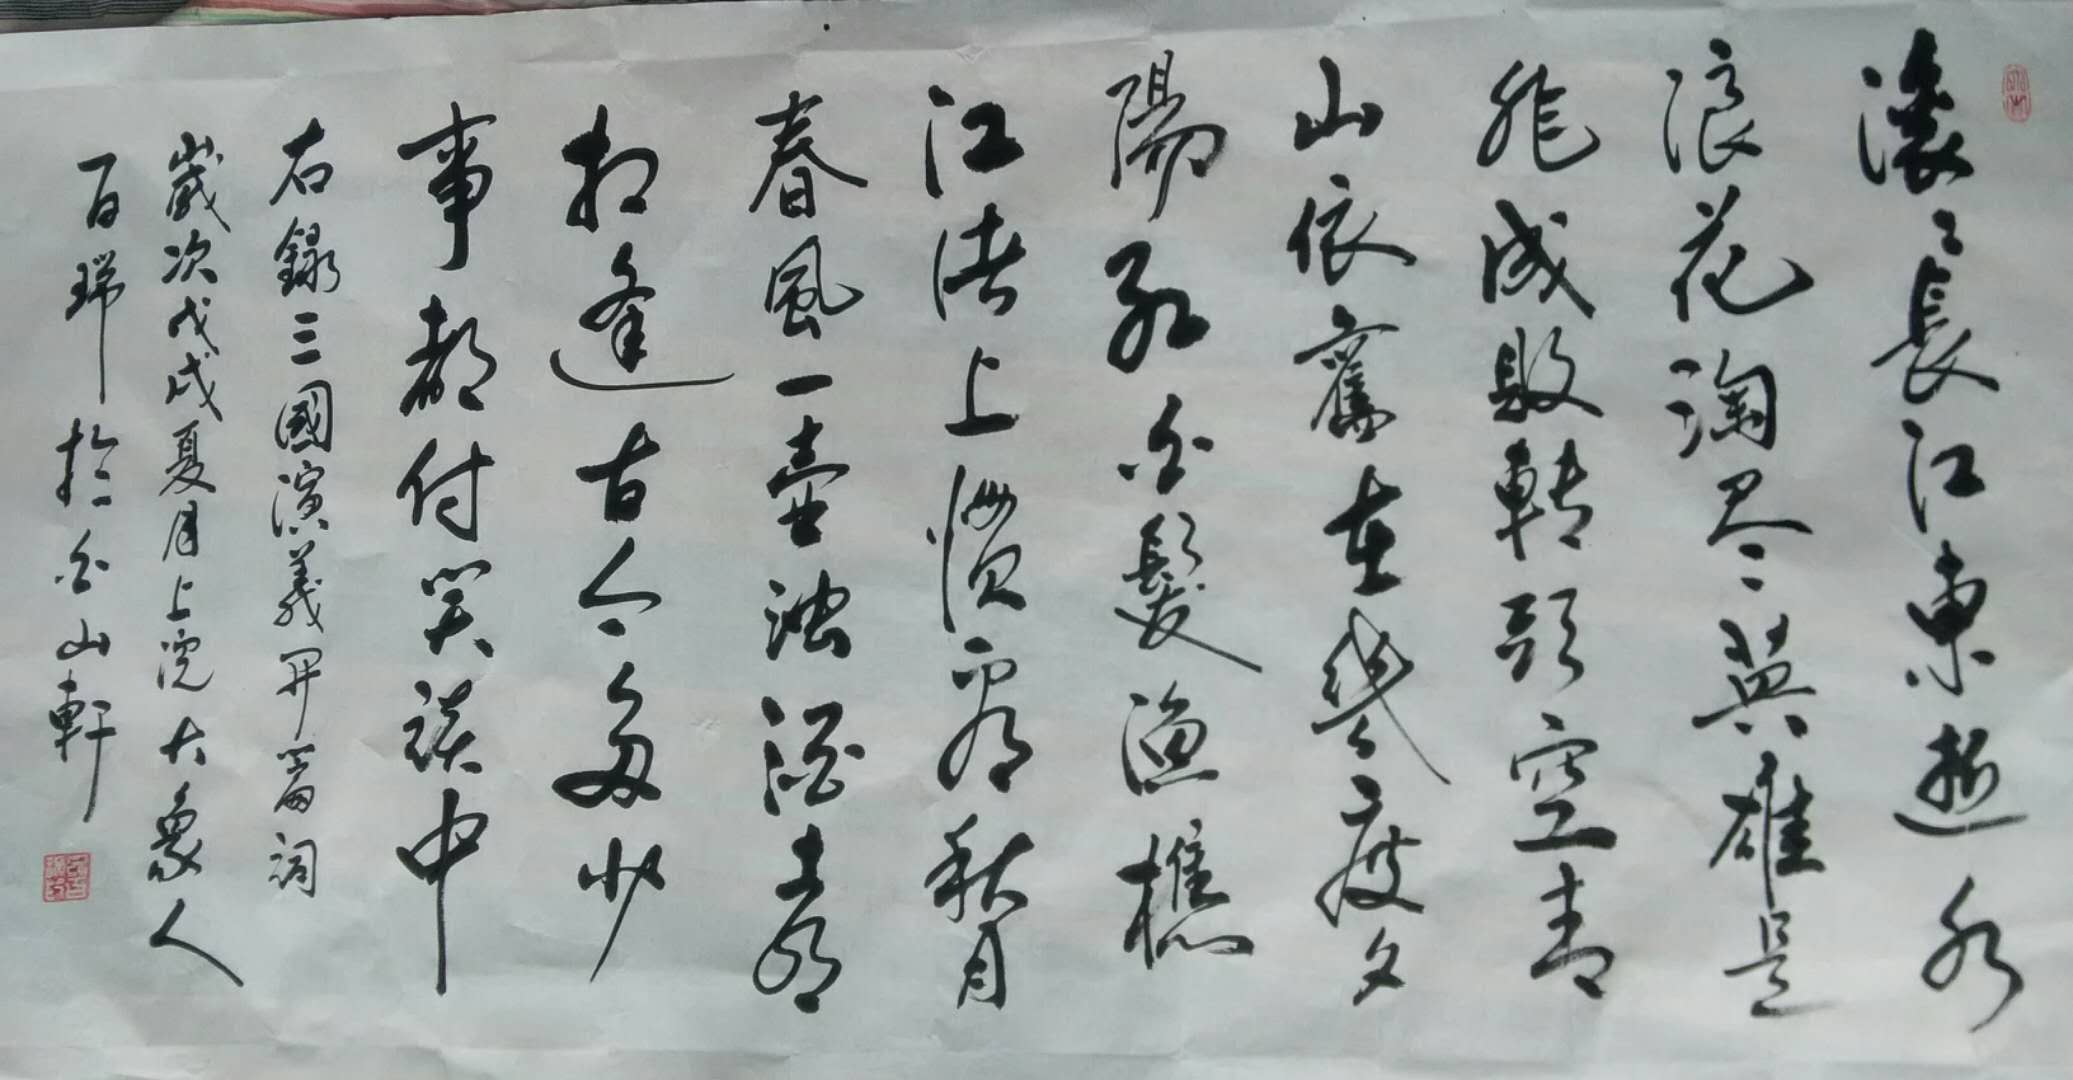 滚々長江東逝水
浪花淘尽英雄是
非成敗轉頭空青
山依舊在幾度夕
陽紅白髮渔樵
江渚上慣看秋月
春風一壺浊酒喜
相逢古今多少
事都付笑談中
右録三國演義开篇词
歲次戊戌夏月上浣大象人
百瑞於白山軒